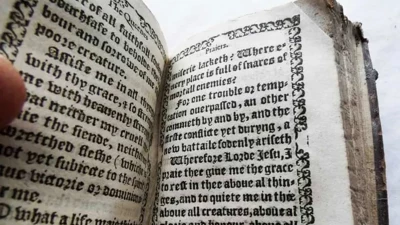 of all faithfull
vouchsafe to beholde
bour and sorrow of
poore creature.
Assiste me in all
with thy grace, so
me with heavenly
that neither my
ate the fiende, neither
wretched fleshe (which
not yet subiecte to the spirit
victorie or
r me.
what a life
Praiers.
miserie lacketh? Where e-
uery place is full of snares of
mortall enemies?
For one trouble or temp
tation ouerpassed, an other
commeth by and by, and the
firste conflict yet duryng, a
new battaile sodenly ariseth
Wherefore Lorde Iesu, I
praie thee giue me the grace
to rest in thee aboue al thin-
ges, and to quiete me in thee
aboue all creatures, aboue al
glorie and honour, aboue al